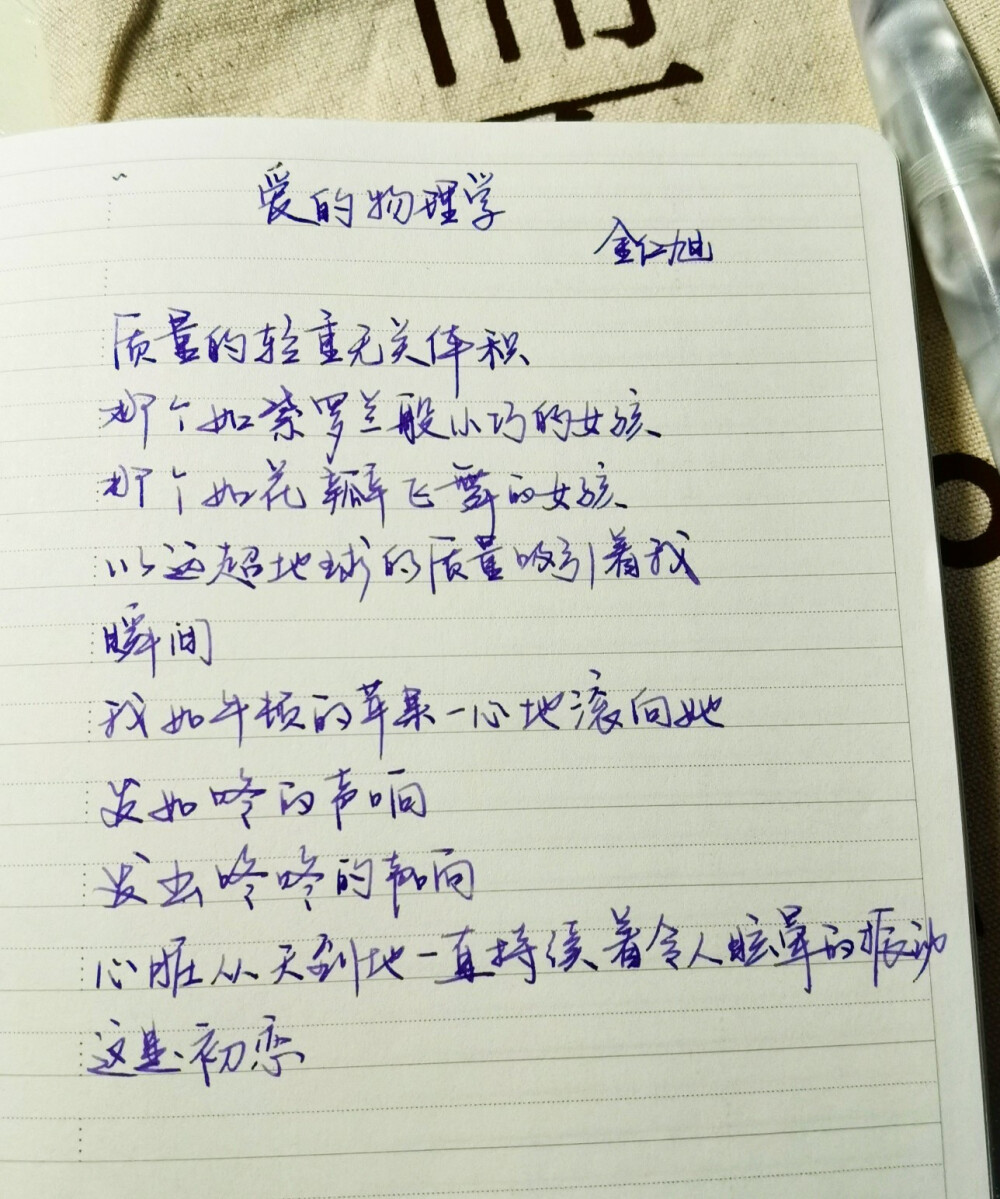 爱的物理学
金仁旭
质量的轻重无关体积
那个如紫罗兰般小巧的女孩、
那个如花瓣飞舞的女孩、
以远超地球的质量吸引着我
瞬间
我如牛顿的苹果一心地滚向她
发如咚的声响
发出咚咚的声响
心脏从天到地一直持续着令人眩晕的振动
这是初恋